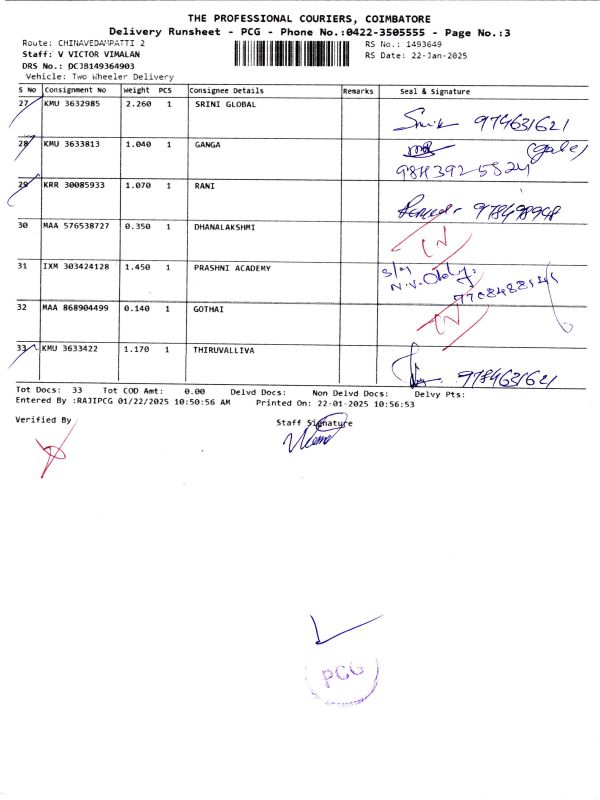 THE PROFESSIONAL COURIERS, COIMBATORE
Delivery Runsheet - PCG - Phone No.:0422-3505555 - Page No.:3
Route: CHINAVEDAMPATTI 2 RS No.: 1493649
Staff: V VICTOR VIMALAN RS Date: 22-Jan-2025
DRS No.: DCJ8149364903
Vehicle: Two Wheeler Delivery
S No Consignment No Weight PCS Consignee Details Remarks Seal & Signature
27 KMU 3632985 2.260 1 SRINI GLOBAL
974631621
28 KMU 3633813 1.040 1 GANGA (gate)
29 KRR 30085933 1.070 1 RANI
30 MAA 576538727 0.350 1 DHANALAKSHMI
IN
31 IXM 303424128 1.450 1 PRASHNI ACADEMY
32 MAA 868904499 0.140 1 GOTHAI
IN
33 KMU 3633422 1.170 1 THIRUVALLIVA
9784631621
Tot Docs: 33 Tot COD Amt: 0.00 Delvd Docs: Non Delvd Docs: Delvy Pts:
Entered By :RAJIPCG 01/22/2025 10:50:56 AM Printed On: 22-01-2025 10:56:53
Verified By Staff Signature
PCG